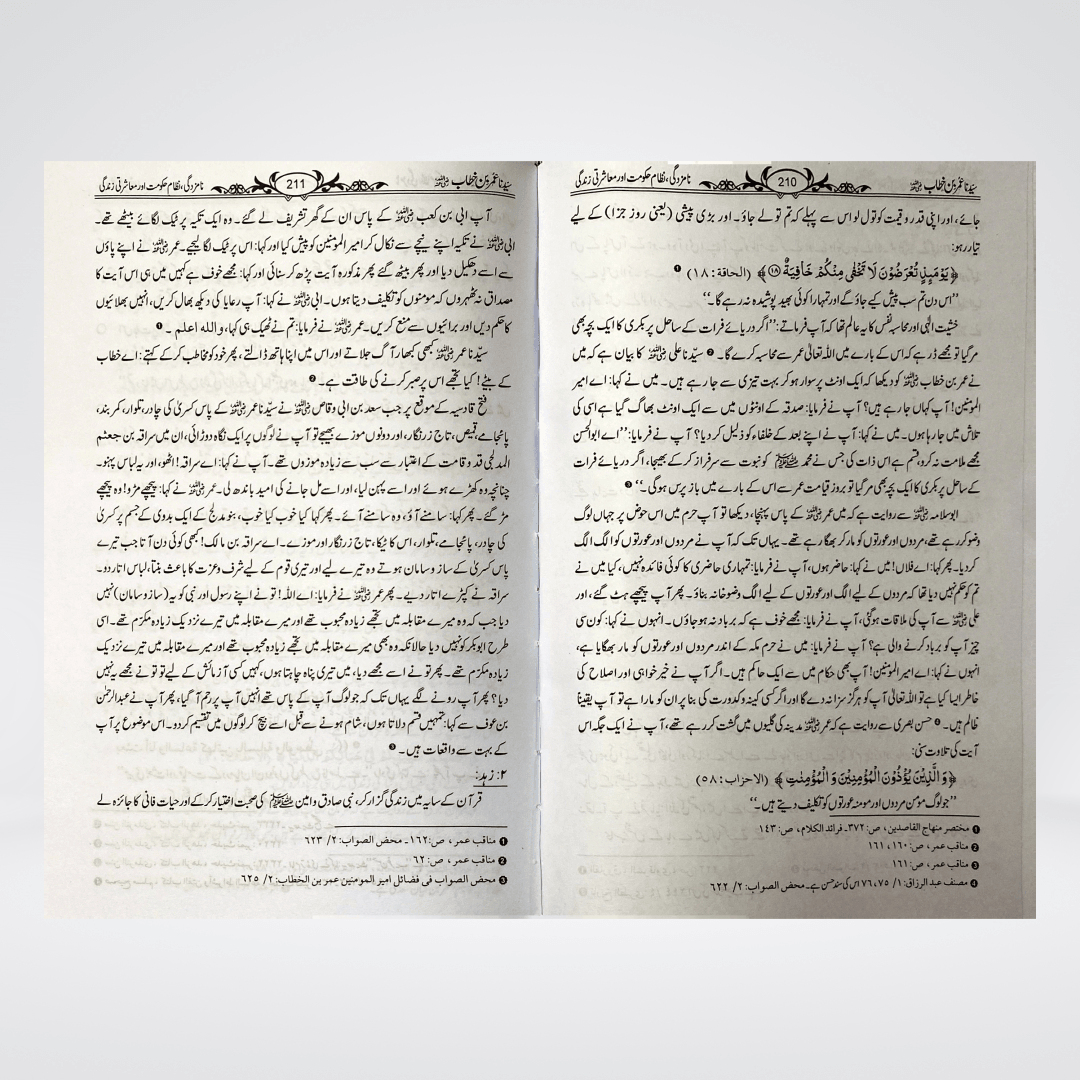 سیّدنا عمر بن خطاب رضی اللہ عنہ 210 نامزدگی، نظام حکومت اور معاشرتی زندگی
جائے، اور اپنی قدر و قیمت کو تول لو اس سے پہلے کہ تم تولے جاؤ۔ اور بڑی پیشی (یعنی روز جزا) کے لیے
تیار رہو:
﴿يَوْمَىِٕذٍ تُعْرَضُوْنَ لَا تَخْفٰى مِنْكُمْ خَافِيَةٌ ۝۱۸﴾ (الحاقة: ۱۸) ❶
’’اس دن تم سب پیش کیے جاؤ گے اور تمہارا کوئی بھید پوشیدہ نہ رہے گا۔‘‘
خشیت الٰہی اور محاسبہ نفس کا یہ عالم تھا کہ آپ فرماتے: ’’اگر دریائے فرات کے ساحل پر بکری کا ایک بچہ بھی
مرگیا تو مجھے ڈر ہے کہ اس کے بارے میں اللہ تعالیٰ عمر سے محاسبہ کرے گا۔ ❷ سیّدنا علی رضی اللہ عنہ کا بیان ہے کہ میں
نے عمر بن خطاب رضی اللہ عنہ کو دیکھا کہ ایک اونٹ پر سوار ہو کر بہت تیزی سے جا رہے ہیں۔ میں نے کہا: اے امیر
المومنین! آپ کہاں جا رہے ہیں؟ آپ نے فرمایا: صدقہ کے اونٹوں میں سے ایک اونٹ بھاگ گیا ہے اسی کی
تلاش میں جا رہا ہوں۔ میں نے کہا: آپ نے اپنے بعد کے خلفاء کو ذلیل کر دیا؟ آپ نے فرمایا: ’’اے ابوالحسن
مجھے ملامت نہ کرو، قسم ہے اس ذات کی جس نے محمد صلی اللہ علیہ وسلم کو نبوت سے سرفراز کر کے بھیجا، اگر دریائے فرات
کے ساحل پر بکری کا ایک بچہ بھی مرگیا تو بروز قیامت عمر سے اس کے بارے میں باز پرس ہوگی۔‘‘ ❸
ابوسلامہ رضی اللہ عنہ سے روایت ہے کہ میں عمر رضی اللہ عنہ کے پاس پہنچا، دیکھا تو آپ حرم میں اس حوض پر جہاں لوگ
وضو کر رہے تھے، مردوں اور عورتوں کو مار کر بھگا رہے تھے۔ یہاں تک کہ آپ نے مردوں اور عورتوں کو الگ الگ
کر دیا۔ پھر کہا: اے فلاں! میں نے کہا: حاضر ہوں، آپ نے فرمایا: تمہاری حاضری کا کوئی فائدہ نہیں، کیا میں نے
تم کو حکم نہیں دیا تھا کہ مردوں کے لیے الگ اور عورتوں کے لیے الگ وضو خانہ بناؤ۔ پھر آپ پیچھے ہٹ گئے، اور
علی رضی اللہ عنہ سے آپ کی ملاقات ہوگئی، آپ نے فرمایا: مجھے خوف ہے کہ برباد نہ ہو جاؤں۔ انہوں نے کہا: کون سی
چیز آپ کو برباد کرنے والی ہے؟ آپ نے فرمایا: میں نے حرم مکہ کے اندر مردوں اور عورتوں کو مار بھگایا ہے،
انہوں نے کہا: اے امیر المومنین! آپ بھی حکام میں سے ایک حاکم ہیں۔ اگر آپ نے خیر خواہی اور اصلاح کی
خاطر ایسا کیا ہے تو اللہ تعالیٰ آپ کو ہرگز سزا نہ دے گا اور اگر کسی کینہ و کدورت کی بنا پر ان کو مارا ہے تو آپ یقینا
ظالم ہیں۔ ❹ حسن بصری سے روایت ہے کہ عمر رضی اللہ عنہ مدینہ کی گلیوں میں گشت کر رہے تھے، آپ نے ایک جگہ اس
آیت کی تلاوت سنی:
﴿وَ الَّذِيْنَ يُؤْذُوْنَ الْمُؤْمِنِيْنَ وَ الْمُؤْمِنٰتِ﴾ (الاحزاب: ۵۸)
’’جو لوگ مومن مردوں اور مومنہ عورتوں کو تکلیف دیتے ہیں۔‘‘
❶ مختصر منهاج القاصدین، ص: ۳۷۲۔ فرائد الکلام، ص: ۱۴۳
❷ مناقب عمر، ص: ۱۶۰، ۱۶۱
❸ مناقب عمر، ص: ۱۶۱
❹ مصنف عبد الرزاق: ۱/ ۷۵، ۷۶ اس کی سند حسن ہے۔ محض الصواب: ۲/ ۶۲۲
سیّدنا عمر بن خطاب رضی اللہ عنہ 211 نامزدگی، نظام حکومت اور معاشرتی زندگی
آپ ابی بن کعب رضی اللہ عنہ کے پاس ان کے گھر تشریف لے گئے۔ وہ ایک تکیہ پر ٹیک لگائے بیٹھے تھے۔
ابی رضی اللہ عنہ نے تکیہ اپنے نیچے سے نکال کر امیر المومنین کو پیش کیا اور کہا: اس پر ٹیک لگا لیجیے۔ عمر رضی اللہ عنہ نے اپنے پاؤں
سے اسے دھکیل دیا اور پھر بیٹھ گئے پھر مذکورہ آیت پڑھ کر سنائی اور کہا: مجھے خوف ہے کہیں میں ہی اس آیت کا
مصداق نہ ٹھہروں کہ مومنوں کو تکلیف دیتا ہوں۔ ابی رضی اللہ عنہ نے کہا: آپ رعایا کی دیکھ بھال کریں، انہیں بھلائیوں
کا حکم دیں اور برائیوں سے منع کریں۔ عمر رضی اللہ عنہ نے فرمایا: تم نے ٹھیک ہی کہا، والله اعلم ۔ ❶
سیّدنا عمر رضی اللہ عنہ کبھی کبھار آگ جلاتے اور اس میں اپنا ہاتھ ڈالتے، پھر خود کو مخاطب کر کے کہتے: اے خطاب
کے بیٹے! کیا تجھے اس پر صبر کرنے کی طاقت ہے۔ ❷
فتح قادسیہ کے موقع پر جب سعد بن ابی وقاص رضی اللہ عنہ نے سیّدنا عمر رضی اللہ عنہ کے پاس کسریٰ کی چادر، تلوار، کمر بند،
پائجامے، قمیص، تاج زرنگار، اور دونوں موزے بھیجے تو آپ نے لوگوں پر ایک نگاہ دوڑائی، ان میں سراقہ بن جعثم
المدلجی قد و قامت کے اعتبار سے سب سے زیادہ موزوں تھے۔ آپ نے کہا: اے سراقہ! اٹھو، اور یہ لباس پہنو۔
چنانچہ وہ کھڑے ہوئے اور اسے پہن لیا، اور اسے مل جانے کی امید باندھ لی۔ عمر رضی اللہ عنہ نے کہا: پیچھے مڑو! وہ پیچھے
مڑ گئے۔ پھر کہا: سامنے آؤ، وہ سامنے آئے۔ پھر کہا کیا خوب کیا خوب، بنو مدلج کے ایک بدوی کے جسم پر کسریٰ
کی چادر، پائجامے، تلوار، اس کا پٹکا، تاج زرنگار اور موزے۔ اے سراقہ بن مالک! کبھی کوئی دن آتا جب تیرے
پاس کسریٰ کے ساز و سامان ہوتے وہ تیرے لیے اور تیری قوم کے لیے شرف و عزت کا باعث بنتا، لباس اتار دو۔
سراقہ نے کپڑے اتار دیے۔ پھر عمر رضی اللہ عنہ نے فرمایا: اے اللہ! تو نے اپنے رسول اور نبی کو یہ (ساز و سامان) نہیں
دیا جب کہ وہ میرے مقابلہ میں تجھے زیادہ محبوب تھے اور میرے مقابلہ میں تیرے نزدیک زیادہ مکرّم تھے۔ اسی
طرح ابوبکر کو نہیں دیا حالانکہ وہ بھی میرے مقابلہ میں تجھے زیادہ محبوب تھے اور میرے مقابلہ میں تیرے نزدیک
زیادہ مکرّم تھے۔ پھر تو نے اسے مجھے دیا، میں تیری پناہ چاہتا ہوں، کہیں کسی آزمائش کے لیے تو تو نے مجھے یہ نہیں
دیا؟ پھر آپ رونے لگے یہاں تک کہ جو لوگ آپ کے پاس تھے انہیں آپ پر رحم آ گیا، پھر آپ نے عبدالرحمٰن
بن عوف سے کہا: تمہیں قسم دلاتا ہوں، شام ہونے سے قبل اسے بیچ کر لوگوں میں تقسیم کر دو۔ اس موضوع پر آپ
کے بہت سے واقعات ہیں۔ ❸
۲: زہد:
قرآن کے سایہ میں زندگی گزار کر، نبی صادق و امین صلی اللہ علیہ وسلم کی صحبت اختیار کر کے اور حیات فانی کا جائزہ لے
❶ مناقب عمر، ص: ۱۶۲۔ محض الصواب: ۲/ ۶۲۳
❷ مناقب عمر، ص: ۶۲
❸ محض الصواب فی فضائل امیر المومنین عمر بن الخطاب: ۲/ ۶۲۵